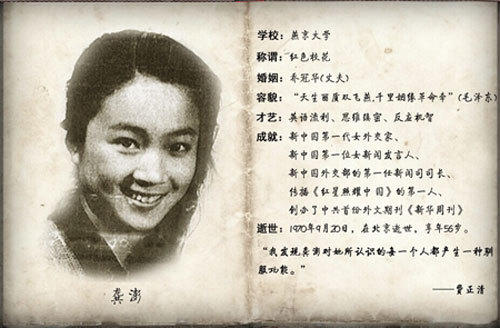 学校：燕京大学
称谓：红色校花
婚姻：乔冠华(丈夫)
容貌：“天生丽质双飞燕，千里姻缘革命牵”(毛泽东)
才艺：英语流利、思维缜密、反应机智
成就：新中国第一代女外交家、
新中国第一位女新闻发言人、
新中国外交部的第一任新闻司司长、
传播《红星照耀中国》的第一人、
创办了中共首份外文期刊《新华周刊》
逝世：1970年9月20日，在北京逝世，享年56岁。
“我发现龚澎对她所认识的每一个人都产生一种驯
服功能。”
——费正清
龚澎